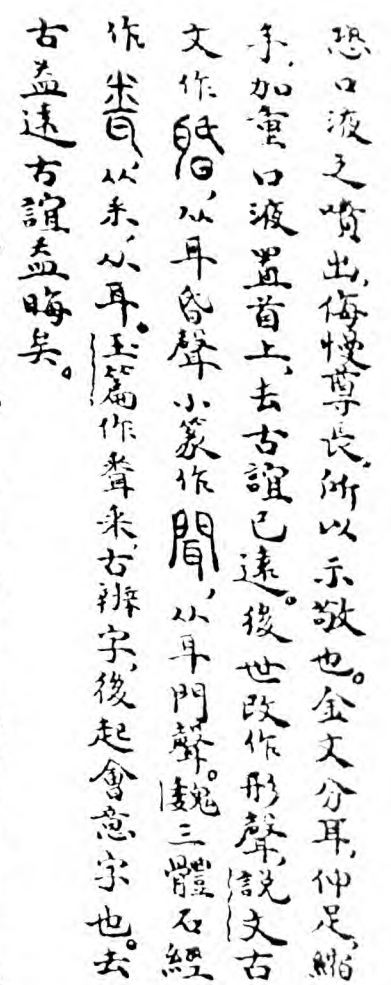 恐口液之噴出，侮慢尊長，所以示敬也。金文分耳，伸足，縮
手，加重口液置首上，去古誼已遠。後世改作形聲，說文古
文作䎽，从耳昏聲小篆作聞，从耳門聲。魏三體石經
作，从釆，从耳。玉篇作䎹釆，古辨字，後起會意字也。去
古益遠古誼益晦矣。